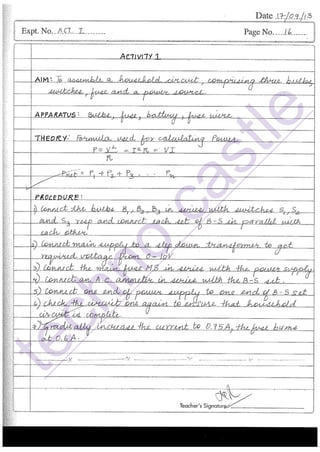 Date 17/09/13
Expt. No. ACT. 1
Page No. 16
ACTIVITY 1
AIM: To assemble a household circuit, comprising three bulbs,
switches, fuse and a power source.
APPARATUS: Bulbs, fuse, battery, fuse wire
THEORY: Formula used for calculating Power
P = V² = I²R = VI
R
= P₁ + P₂ + P₃ . . . Pn
PROCEDURE:
1) Connect the bulbs B₁, B₂, B₃ in series with switches S₁, S₂
and S₃ resp and connect each set of B-S in parallel with
each other.
2) Connect main supply to a step down transformer to get
required voltage from 0-10V
3) Connect the main fuse M.S in series with the power supply
4) Connect an A.C. ammeter in series with the B-S set.
5) Connect one end of power supply to one end of B-S set
6) check the circuit one again to ensure that household
circuit is complete
7) Gradually increase the current to 0.75A, the fuse burns
at 0.6A.
Teacher's Signature
techno castle